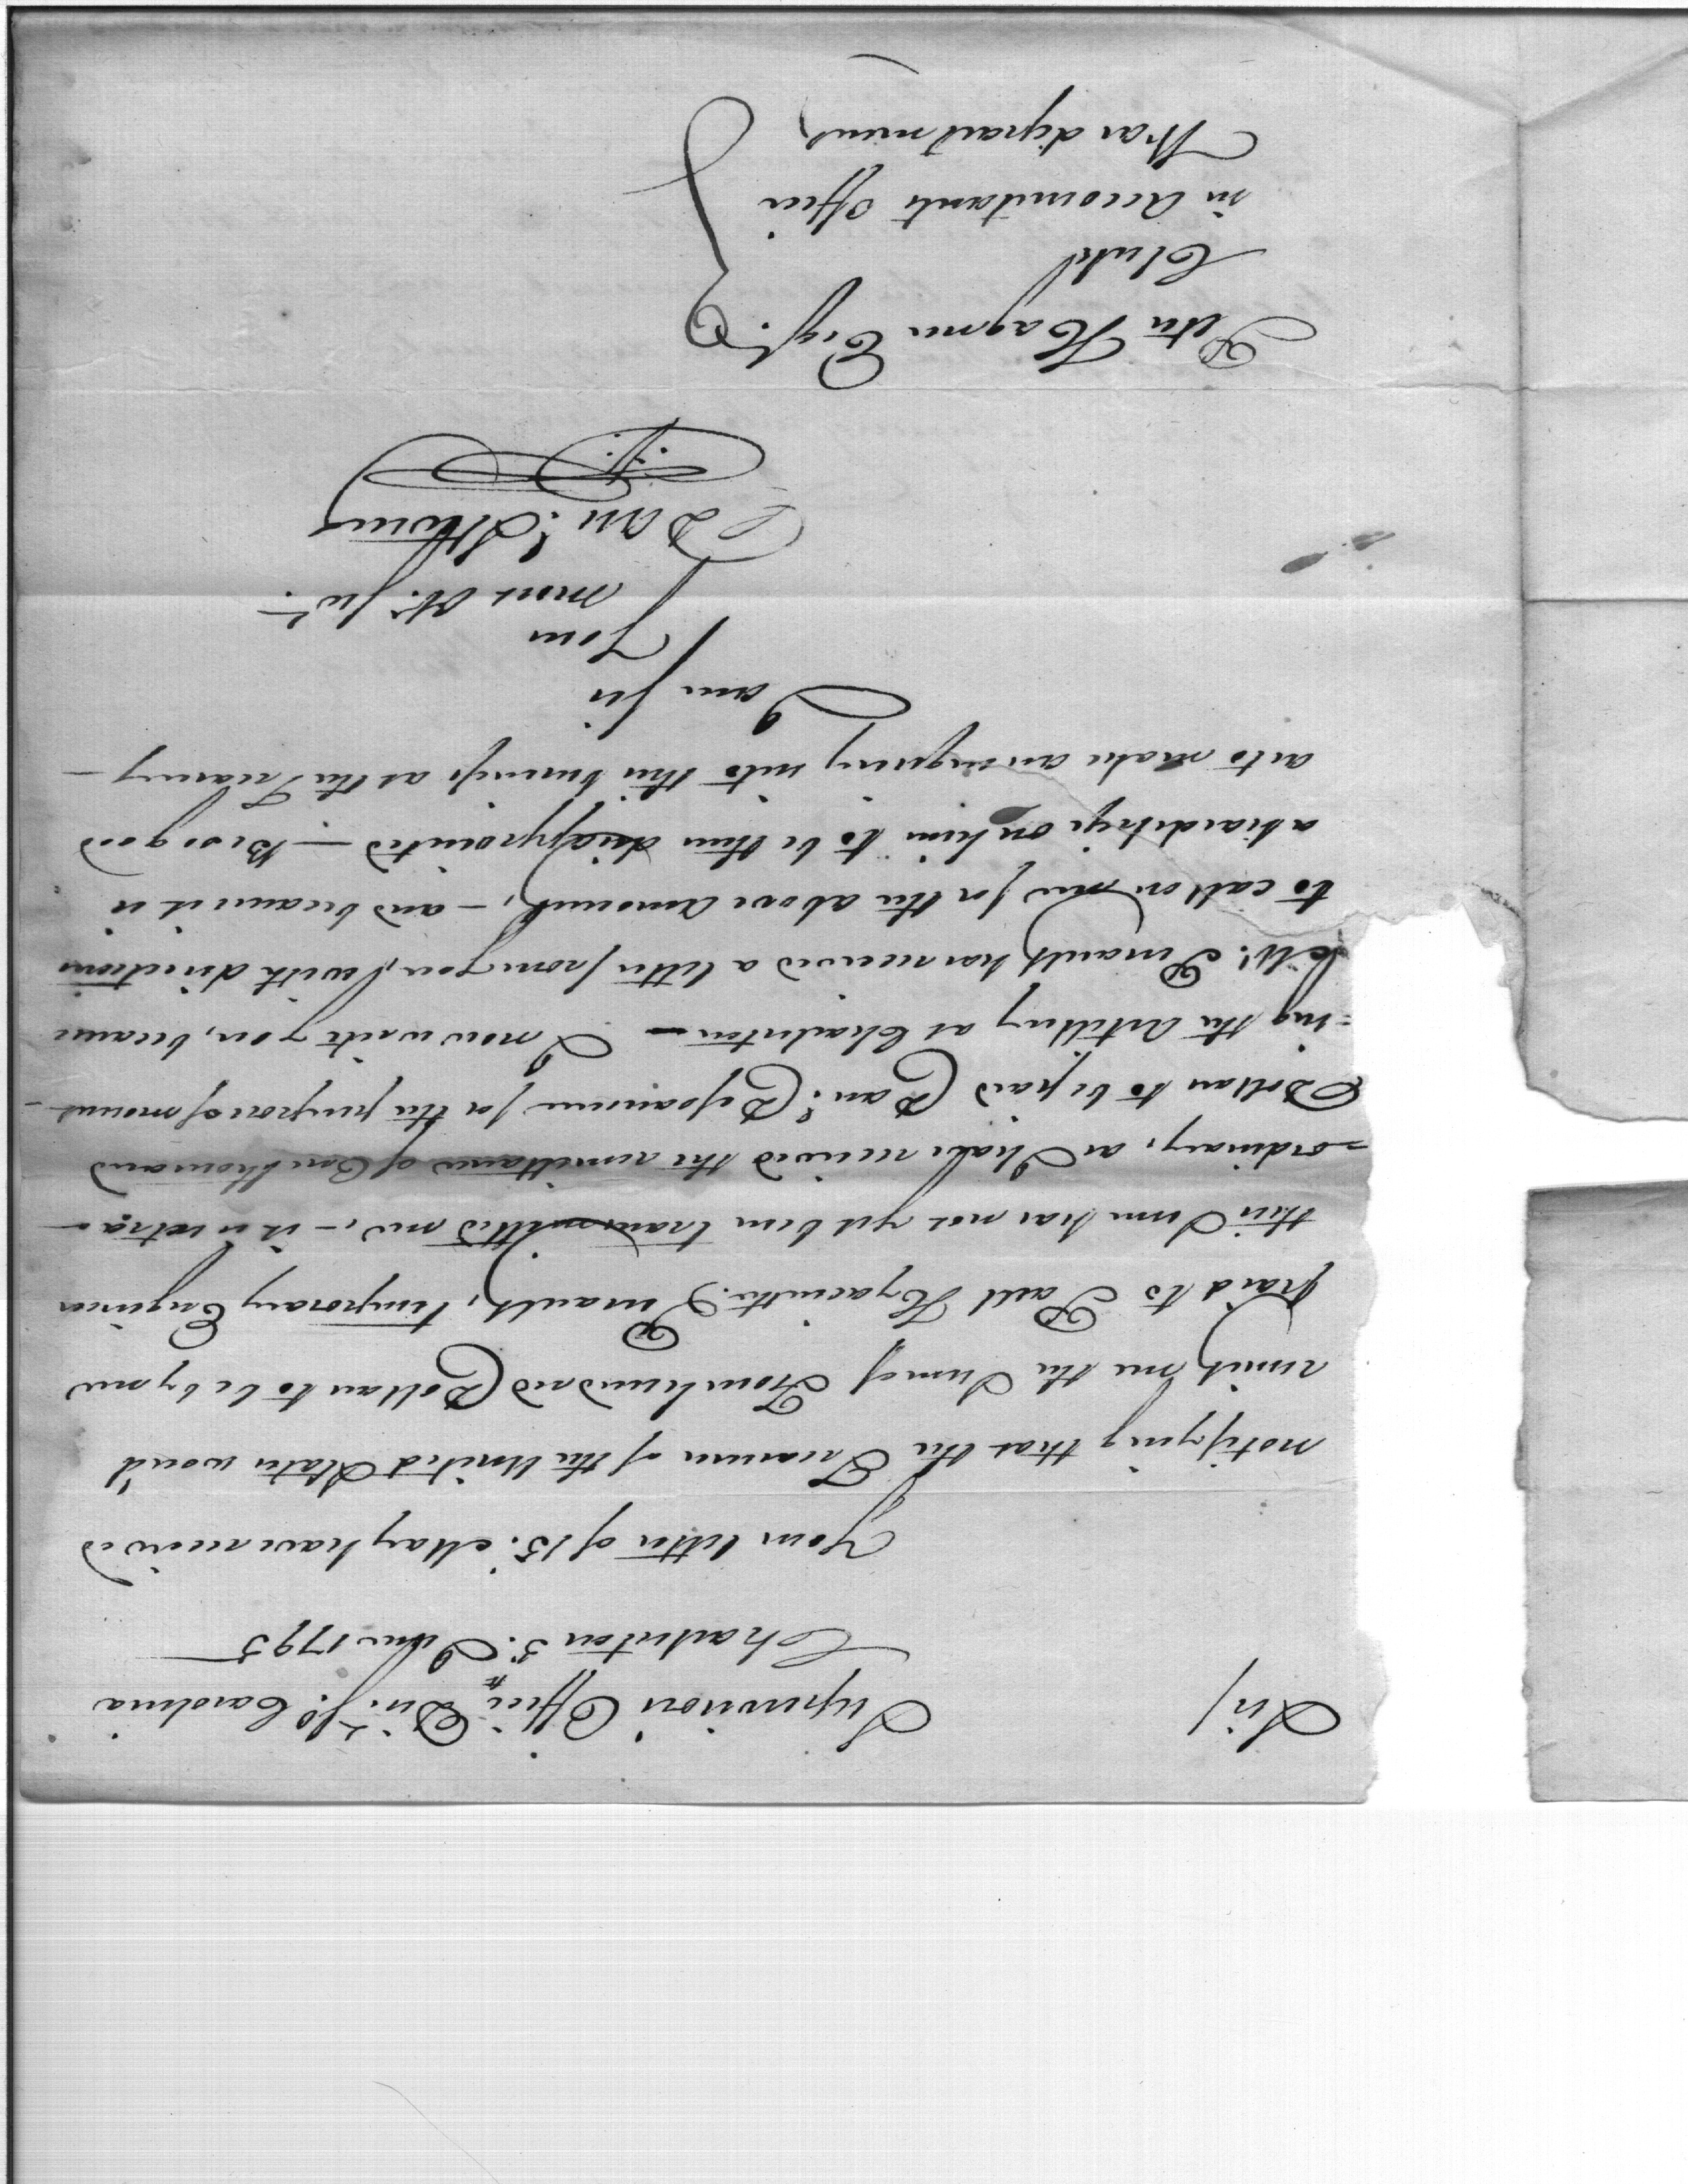 Sir/
Supervisors Office, Dist. So. Carolina
Charleston 5. June 1795
Your letter of 15. May have received
notifying that the Treasurer of the United States would
remit me the Sum of Four hundred Dollars to be by me
paid to Paul Hyacinthe Perrault, temporary Engineer
this Sum has not yet been transmitted me, - it is extra-
=ordinary, as I have received the remittance of One thousand
Dollars to be paid Danl. Desaussure for the purpose of mount-
=ing the Artillery at Charleston - I now write you, because
Mr. Perrault, has received a letter from you, with directions
to call on me for the above amount, - and because it is
a hardship on him to be thus disappointed - Be so good
as to make an inquiry into this business at the Treasury -
I am sir
Your
most Ob. Sert.
Danl. Stevens
Peter Hagner Esqr.
Clerk
in Accountants Office
War department